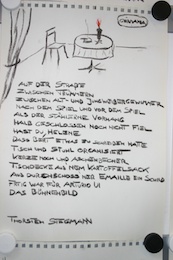 AUF DER STRAßE
ZWISCHEN TRÜMMERN
ZWISCHEN ALT- UND JUNGWEIBERGEWIMMER
NACH DEM SPIEL UND VOR DEM SPIEL
ALS DER STÄHLERNE VORHANG
HALB GESCHLOSSEN NOCH NICHT FIEL
HAST DU, HELENE
DASS BRET ETWAS ZU SCHREIBEN HATTE
TISCH UND STUHL ORGANISIERT
KERZE NOCH UND ASCHENBECHER
TISCHDECKE AUS NEM KARTOFFELSACK
AUS DURCHSCHOSSNER EMAILLE EIN SCHILD
FERTIG WAR FÜR ARTURO UI
DAS BÜHNENBILD
THORSTEN STEGMANN